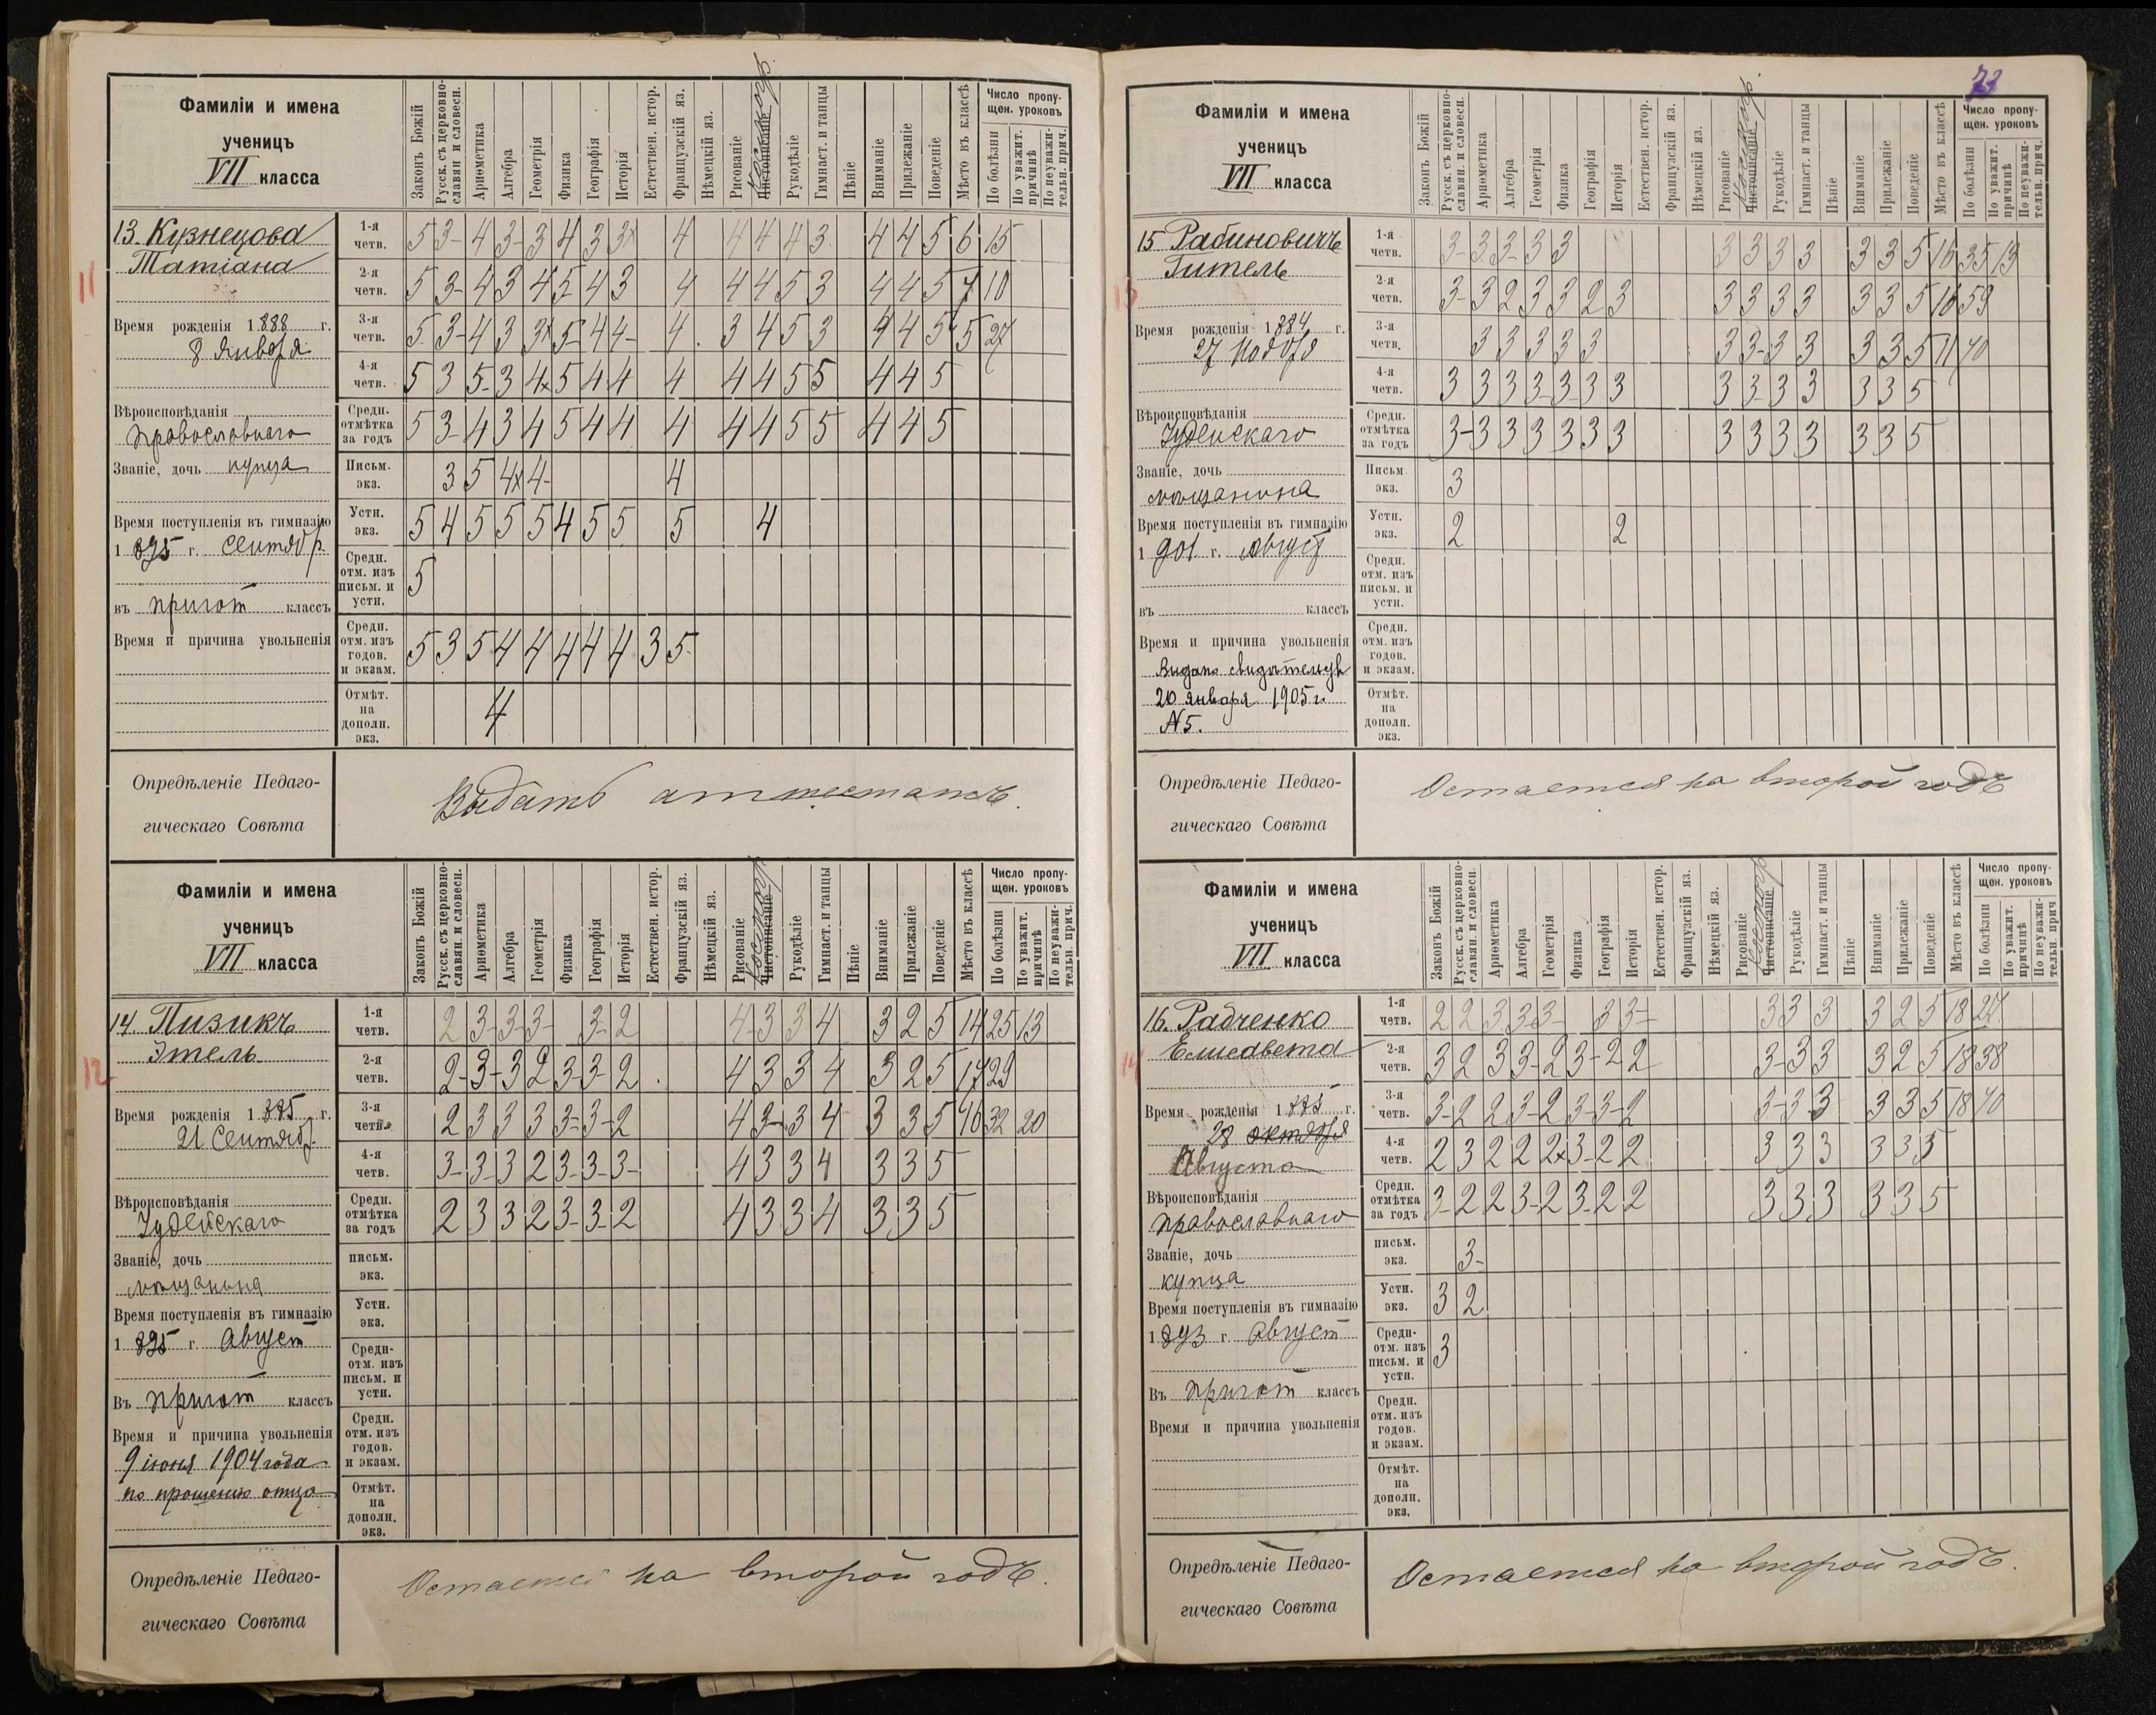 73
Фамиліи и имена
ученицъ
VII класса
Законъ Божій
Русск. съ церковно-
славян. и словесн.
Ариѳметика
Алгебра
Геометрія
Физика
Географія
Исторія
Естествен. истор.
Французскій яз.
Нѣмецкій яз.
Рисованіе
Чистописаніе
Рукодѣліе
Гимнаст. и танцы
Пѣніе
Вниманіе
Прилежаніе
Поведеніе
Мѣсто въ классѣ
Число пропу-
щен. уроковъ
По болѣзни
По уважит.
причинѣ
По неуважи-
тельн. прич.
11
13. Кузнецова
Татіана
Время рожденія 1888 г.
8 января
Вѣроисповѣданія
православнаго
Званіе, дочь купца
Время поступленія въ гимназію
1895 г. сентябр
въ пригот классъ
Время и причина увольненія
1-я четв. 5 3- 4 3- 3 4 3 3х 4 4 4 4 3 4 4 5 6 15
2-я четв. 5 3- 4 3 4 5- 4 3 4 4 4 5 3 4 4 5 7 10
3-я четв. 5 3- 4 3 3х 5- 4 4- 4 3 4 5 3 4 4 5 5 27
4-я четв. 5 3 5- 3 4х 5 4 4 4 4 4 5 5 4 4 5
Средн. отмѣтка за годъ 5 3- 4 3 4 5 4 4 4 4 4 5 5 4 4 5
Письм. экз. 3 5 4х 4- 4
Устн. экз. 5 4 5 5 5 4 5 5 5 4
Средн. отм. изъ письм. и устн. 5
Средн. отм. изъ годов. и экзам. 5 3 5 4 4 4 4 4 3 5
Отмѣт. на дополн. экз. 4
Опредѣленіе Педаго-
гическаго Совѣта
Выдать аттестатъ.
Фамиліи и имена
ученицъ
VII класса
Законъ Божій
Русск. съ церковно-
славян. и словесн.
Ариѳметика
Алгебра
Геометрія
Физика
Географія
Исторія
Естествен. истор.
Французскій яз.
Нѣмецкій яз.
Рисованіе
Чистописаніе
Рукодѣліе
Гимнаст. и танцы
Пѣніе
Вниманіе
Прилежаніе
Поведеніе
Мѣсто въ классѣ
Число пропу-
щен. уроковъ
По болѣзни
По уважит.
причинѣ
По неуважи-
тельн. прич.
12
14 Пизикъ
Этель
Время рожденія 1885 г.
21 Сентябр
Вѣроисповѣданія
Іудейскаго
Званіе, дочь
мѣщанина
Время поступленія въ гимназію
1895 г. Август
Въ пригот классъ
Время и причина увольненія
9 іюня 1904 года
по прошенію отца
1-я четв. 2 3- 3 3- 3- 2 4- 3 3 4 3 2 5 14 25 13
2-я четв. 2- 3- 3 2 3- 3- 2 4 3 3 4 3 2 5 17 29
3-я четв. 2 3 3 3 3- 3- 2 4 3- 3 4 3 3 5 16 32 20
4-я четв. 3- 3- 3 2 3- 3- 3- 4 3 3 4 3 3 5
Средн. отмѣтка за годъ 2 3 3 2 3- 3- 2 4 3 3 4 3 3 5
письм. экз.
Устн. экз.
Средн- отм. изъ письм. и устн.
Средн. отм. изъ годов. и экзам.
Отмѣт. на дополн. экз.
Опредѣленіе Педаго-
гическаго Совѣта
Остается на второй годъ.
Фамиліи и имена
ученицъ
VII класса
Законъ Божій
Русск. съ церковно-
славян. и словесн.
Ариѳметика
Алгебра
Геометрія
Физика
Географія
Исторія
Естествен. истор.
Французскій яз.
Нѣмецкій яз.
Рисованіе
Чистописаніе
Рукодѣліе
Гимнаст. и танцы
Пѣніе
Вниманіе
Прилежаніе
Поведеніе
Мѣсто въ классѣ
Число пропу-
щен. уроковъ
По болѣзни
По уважит.
причинѣ
По неуважи-
тельн. прич.
13
15 Рабиновичъ
Гитель
Время рожденія 1884 г.
27 Ноября
Вѣроисповѣданія
Іудейскаго
Званіе, дочь
мѣщанина
Время поступленія въ гимназію
1901 г. август
въ классъ
Время и причина увольненія
Выдано свидѣтельств
20 января 1905 г.
№ 5.
1-я четв. 3- 3 3- 3 3 3 3 3 3 3 3 5 16 35 13
2-я четв. 3- 3 2 3 3 2 3 3 3 3 3 3 3 5 16 59
3-я четв. 3 3 3 3 3 3 3- 3 3 3 3 5 11 40
4-я четв. 3 3 3 3- 3- 3 3 3 3- 3 3 3 3 5
Средн. отмѣтка за годъ 3- 3 3 3 3 3 3 3 3 3 3 3 3 5
Письм экз. 3
Устн. экз. 2 2
Средн. отм. изъ письм. и устн.
Средн. отм. изъ годов. и экзам.
Отмѣт. на дополн. экз.
Опредѣленіе Педаго-
гическаго Совѣта
Остается на второй годъ
Фамиліи и имена
ученицъ
VII класса
Законъ Божій
Русск. съ церковно-
славян. и словесн.
Ариѳметика
Алгебра
Геометрія
Физика
Географія
Исторія
Естествен. истор.
Французскій яз.
Нѣмецкій яз.
Рисованіе
Чистописаніе
Рукодѣліе
Гимнаст. и танцы
Пѣніе
Вниманіе
Прилежаніе
Поведеніе
Мѣсто въ классѣ
Число пропу-
щен. уроковъ
По болѣзни
По уважит.
причинѣ
По неуважи-
тельн. прич
14
16. Радченко
Елисавета
Время рожденія 1885 г.
28 октября
Августа
Вѣроисповѣданія
православнаго
Званіе, дочь
купца
Время поступленія въ гимназію
1893 г. Август
Въ пригот классъ
Время и причина увольненія
1-я четв. 2 2 3 3 3- 3 3- 3 3 3 3 2 5 18 24
2-я четв. 3 2 3 3- 2 3- 2 2 3- 3 3 3 2 5 18 38
3-я четв. 3- 2 2 3- 2 3- 3- 2 3- 3- 3 3 3 5 18 40
4-я четв. 2 3 2 2 2х 3- 2 2 3 3 3 3 3 5
Средн. отмѣтка за годъ 3- 2 2 3- 2 3- 2 2 3 3 3 3 3 5
письм. экз. 3-
Устн. экз. 3 2
Средн- отм. изъ письм. и устн. 3
Средн. отм. изъ годов. и экзам.
Отмѣт. на дополн. экз.
Опредѣленіе Педаго-
гическаго Совѣта
Остается на второй годъ.